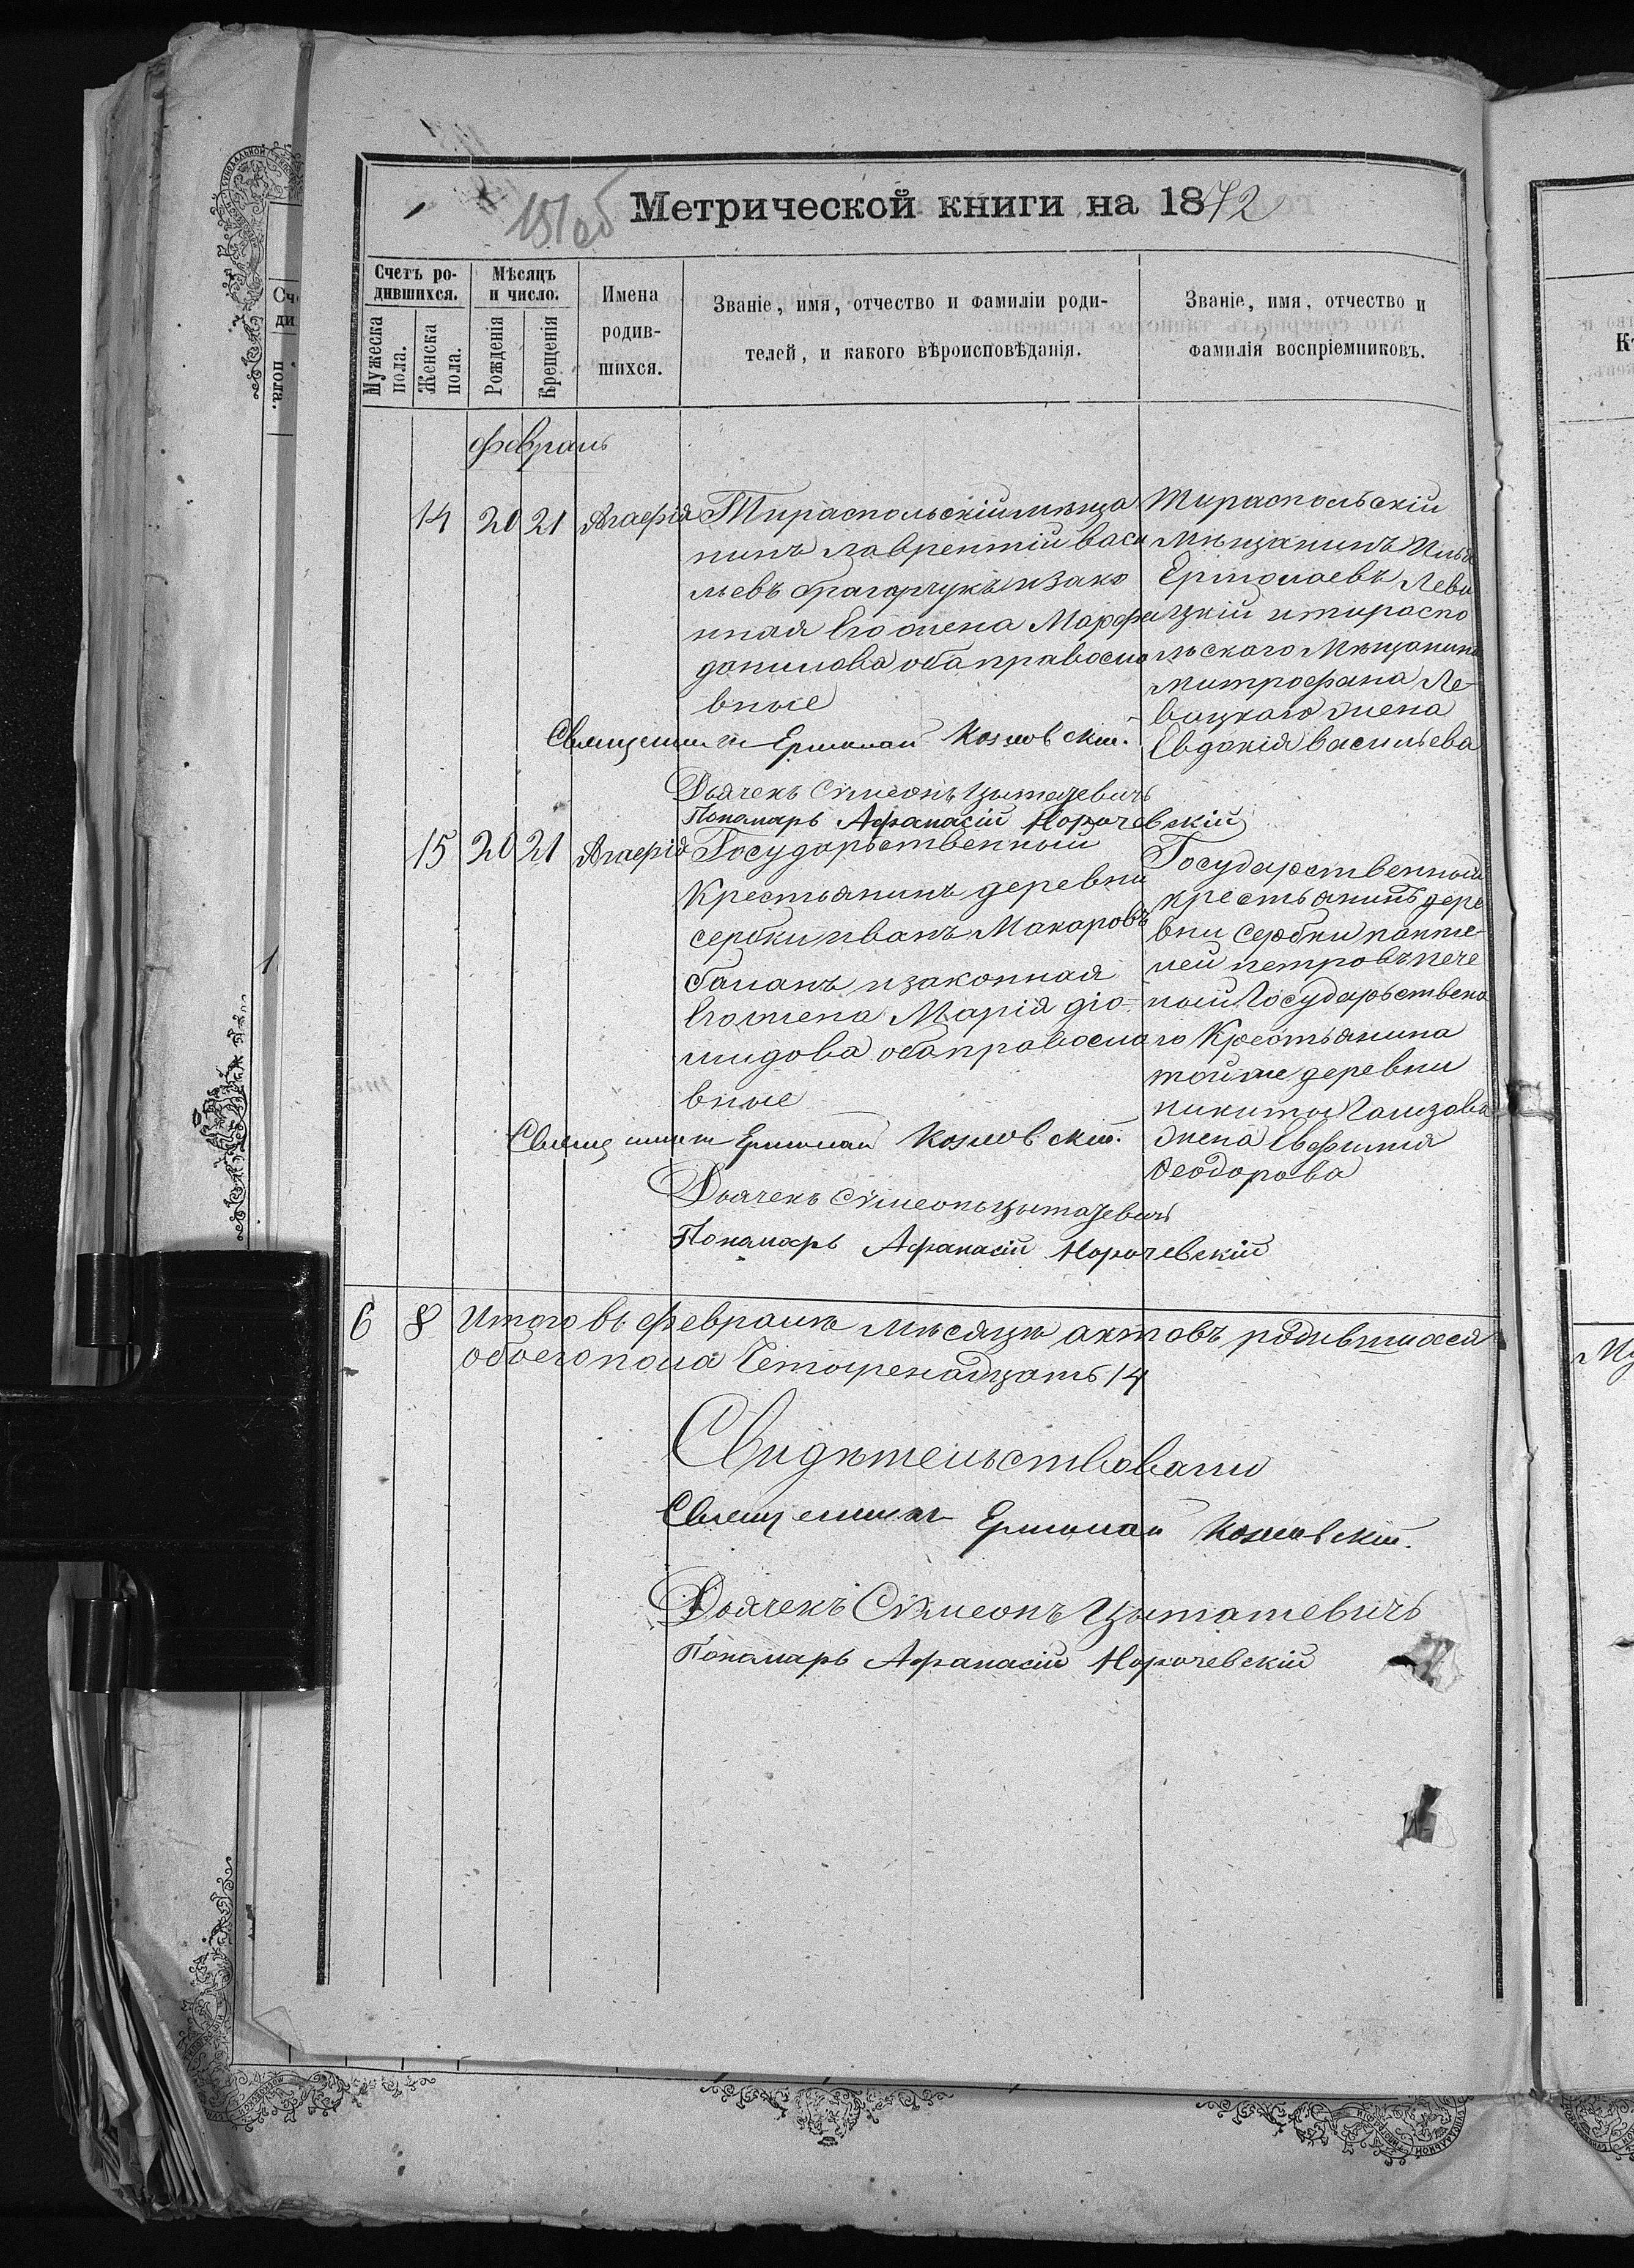 151об
Метрической книги на 1872
Счетъ ро-
дившихся.
Мужеска
пола.
Женска
пола.
Мѣсяцъ
и число.
Рожденія
Крещенія
Имена
родив-
шихся.
Званіе, имя, отчество и фамиліи роди-
телей, и какого вѣроисповѣданія.
Званіе, имя, отчество и
фамилія воспріемниковъ.
Февраль
14 20 21 Агафія
Тираспольскій мѣща
нинъ лаврентій васи
льевъ и зако
нная его жена Марфа
данилова оба православ
вные
Тираспольскій
мѣщанинъ Илья
Ермолаевъ Лева
цкій и тираспо
льского мѣщанина
митрофана Ле-
вацкаго жена
Евдокія васильева
Священникъ Ермолай Козловскій.
Дьячекъ Сѵмеонъ
Пономарь Афанасій Норочевскій
15 20 21 Агафія
Государьственный
Крестьянинъ деревни
сербки иванъ Макаровъ
баланъ и законная
его жена Марія діо-
мидова оба правосла
вные
Государственный
крестьянинъ дере
вни сербки панте-
лей петровъ пече
ный Государьствена
го Крестьянина
тойже деревни
никиты
жена Евфимія
Феодорова
Священникъ Ермолай Козловскій.
Дьячекъ Сѵмеонъ
Пономарь Афанасій Норочевскій
6 8 Итого въ февралѣ мѣсяцѣ актовъ родившихся
обоего пола Четыренадцать 14
Свидѣтельствовали
Священникъ Ермолай Козловскій.
Дьячекъ Сѵмеонъ Цытатевичъ
Пономарь Афанасій Норочевскій